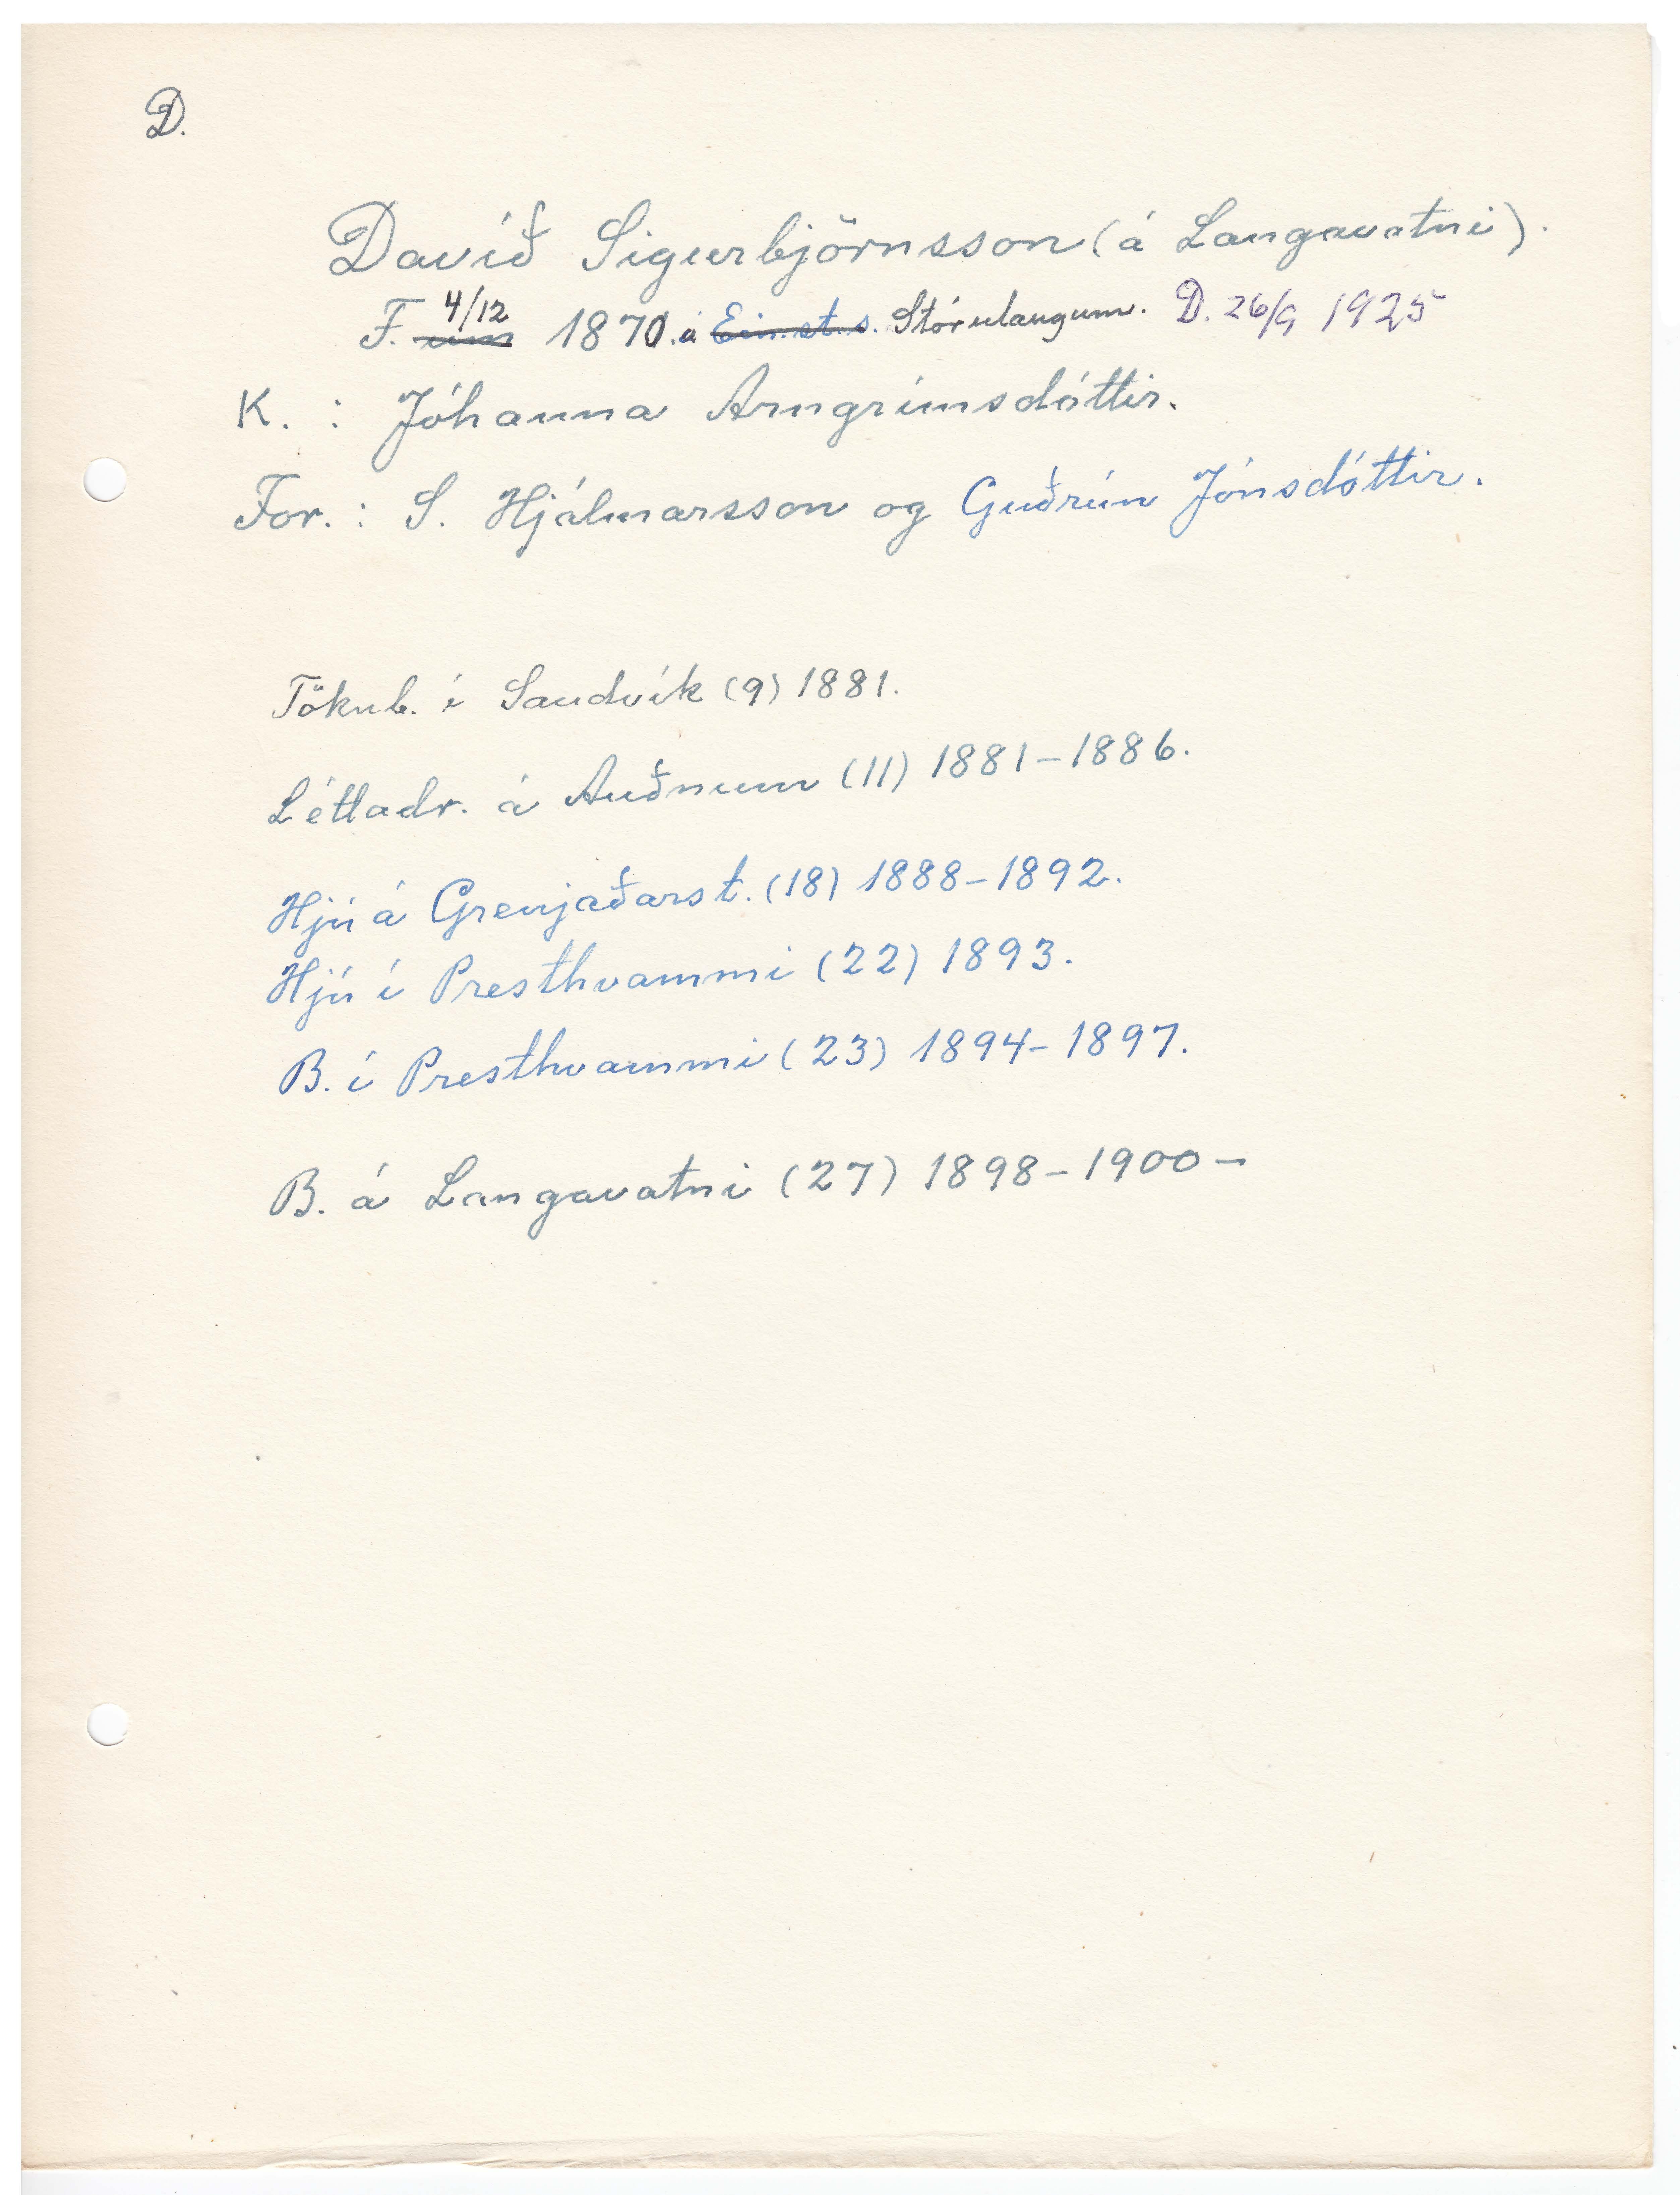 D.
Davíð Sigurbjörnsson (á Langavatni).
F. 4/12 ~~um~~ 1870. á ~~Ein.st.s.~~ Stórulaugum. D. 26/9 1925
K. : Jóhanna Arngrímsdóttir.
For. : S. Hjálmarsson og Guðrún Jónsdóttir.
Tökub. í Sandvík (9) 1881.
Léttadr. á Auðnum (11) 1881-1886.
Hjú á Grenjaðarst. (18) 1888-1892.
Hjú í Presthvammi (22) 1893.
B. í Presthvammi (23) 1894-1897.
B. á Langavatni (27) 1898-1900-